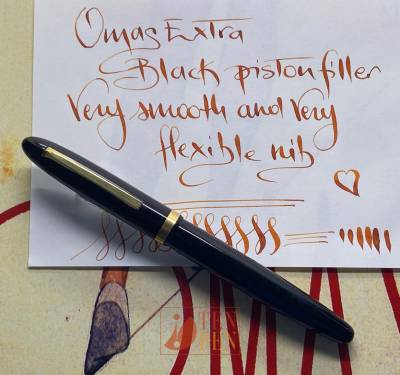 Omas Extra
Black piston filler
Very smooth and Very
flexible nib
TEN
PEN